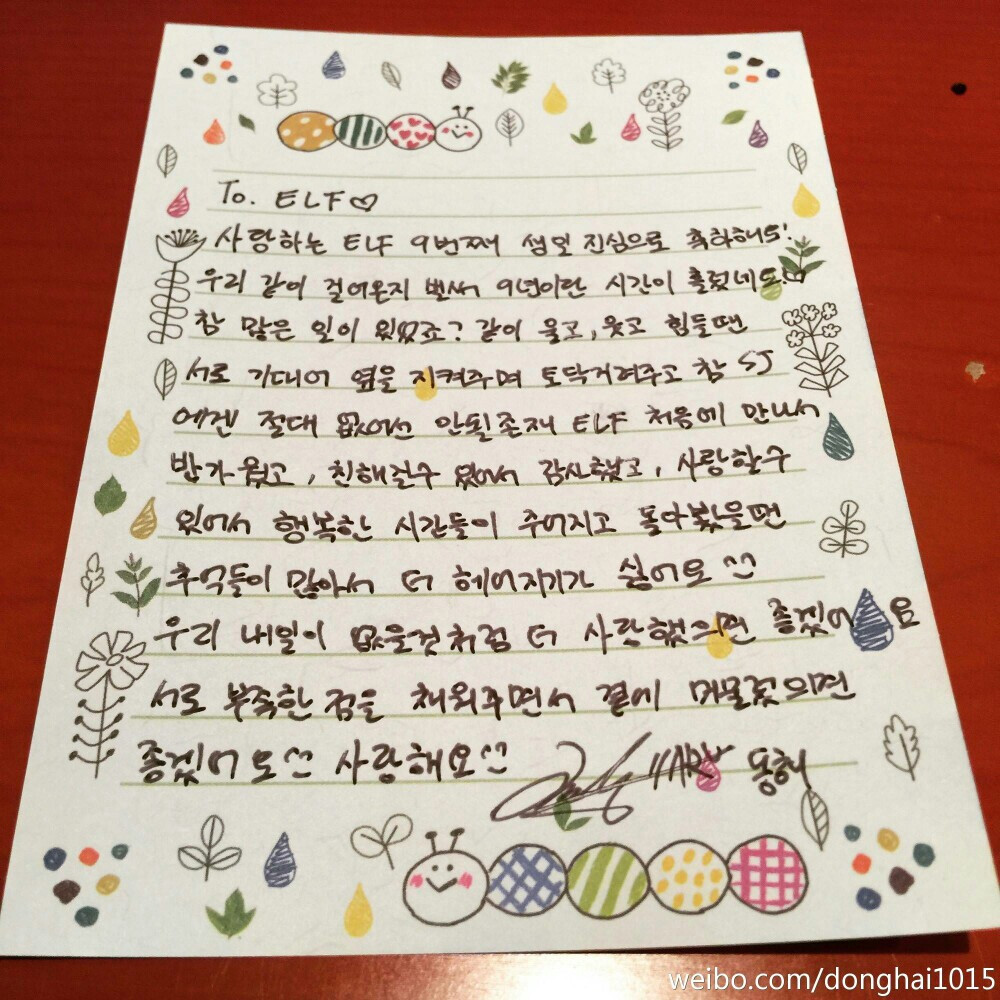 To. ELF♡
사랑하는 ELF 9번째 생일 진심으로 축하해요!
우리 같이 걸어온지 벌써 9년이란 시간이 흘렀네요!♡
참 많은 일이 있었죠? 같이 울고, 웃고 힘들땐
서로 기대어 옆을 지켜주며 토닥거려주고 참 SJ
에겐 절대 없어선 안될존재 ELF 처음에 만나서
반가웠고, 친해질수 있어서 감사했고, 사랑할수
있어서 행복한 시간들이 주어지고 돌아봤을땐
추억들이 많아서 더 헤어지기가 싫어요^^
우리 내일이 없을것처럼 더 사랑했으면 좋겠어요
서로 부족한 점을 채워주면서 곁에 머물렀으면
좋겠어요^^ 사랑해요^^ 동해
weibo.com/donghai1015